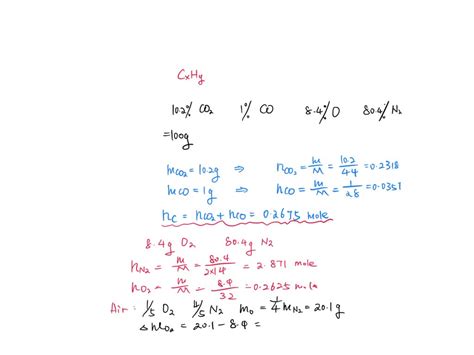 CxHy
10.2% CO2 1% CO 8.4% O 80.4% N2
=100g
mCO2=10.2g ⇒ nCO2=m/M=10.2/44=0.2318
mCO=1g ⇒ nCO=m/M=1/28=0.0351
nC=nCO2+nCO=0.2675 mole
8.4g O2 80.4g N2
nN2=m/M=80.4/2x14=2.871 mole
nO2=m/M=8.4/32=0.2625 mole
Air: 1/5 O2 4/5 N2 mO=1/4mN2=20.1g
△mO2=20.1-8.4=